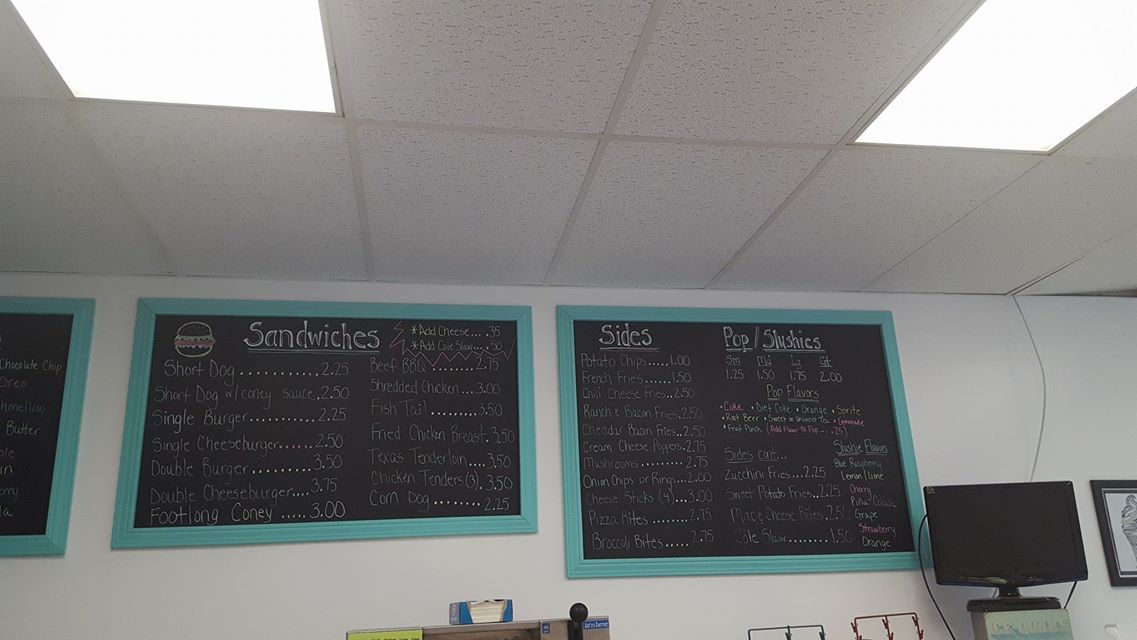 Chocolate Chip
Oreo
Butter
Sandwiches
*Add Cheese.... .35
*Add Cole Slaw... .50
Short Dog ............ 2.25
Short Dog w/coney sauce .2.50
Single Burger .......... 2.25
Single Cheeseburger....... 2.50
Double Burger .......... 3.50
Double Cheeseburger.... 3.75
Footlong Coney ..... 3.00
Beef BBQ ......... 2.75
Shredded Chicken... 3.00
Fish Tail ........ 3.50
Fried Chicken Breast. 3.50
Texas Tenderloin.... 3.50
Chicken Tenders (3). 3.50
Corn Dog ........ 2.25
Sides
Potato Chips...... 1.00
French Fries...... 1.50
Chili Cheese Fries..2.50
Ranch & Bacon Fries..2.50
Cheddar Bacon Fries..2.50
Cream Cheese Poppers.2.75
Mushrooms ....... 2.75
Onion Chips or Rings...2.00
Cheese Sticks (4)...3.00
Pizza Bites ....... 2.75
Broccoli Bites..... 2.75
Pop/Slushies
Sm Md Lg
1.25 1.50 1.75 2.00
Pop Flavors
• Coke • Diet Coke • Orange • Sprite
• Root Beer • Sweet or Unsweet Tea • Lemonade
• Fruit Punch (Add Flavor to Pop .... .25)
Sides cont...
Zucchini Fries...2.25
Sweet Potato Fries..2.25
Mac & Cheese Bites.
Cole Slaw........ 1.50
Slushie Flavors
Blue Raspberry
Lemon/Lime
Cherry
Pina Colada
Grape
Strawberry
Orange